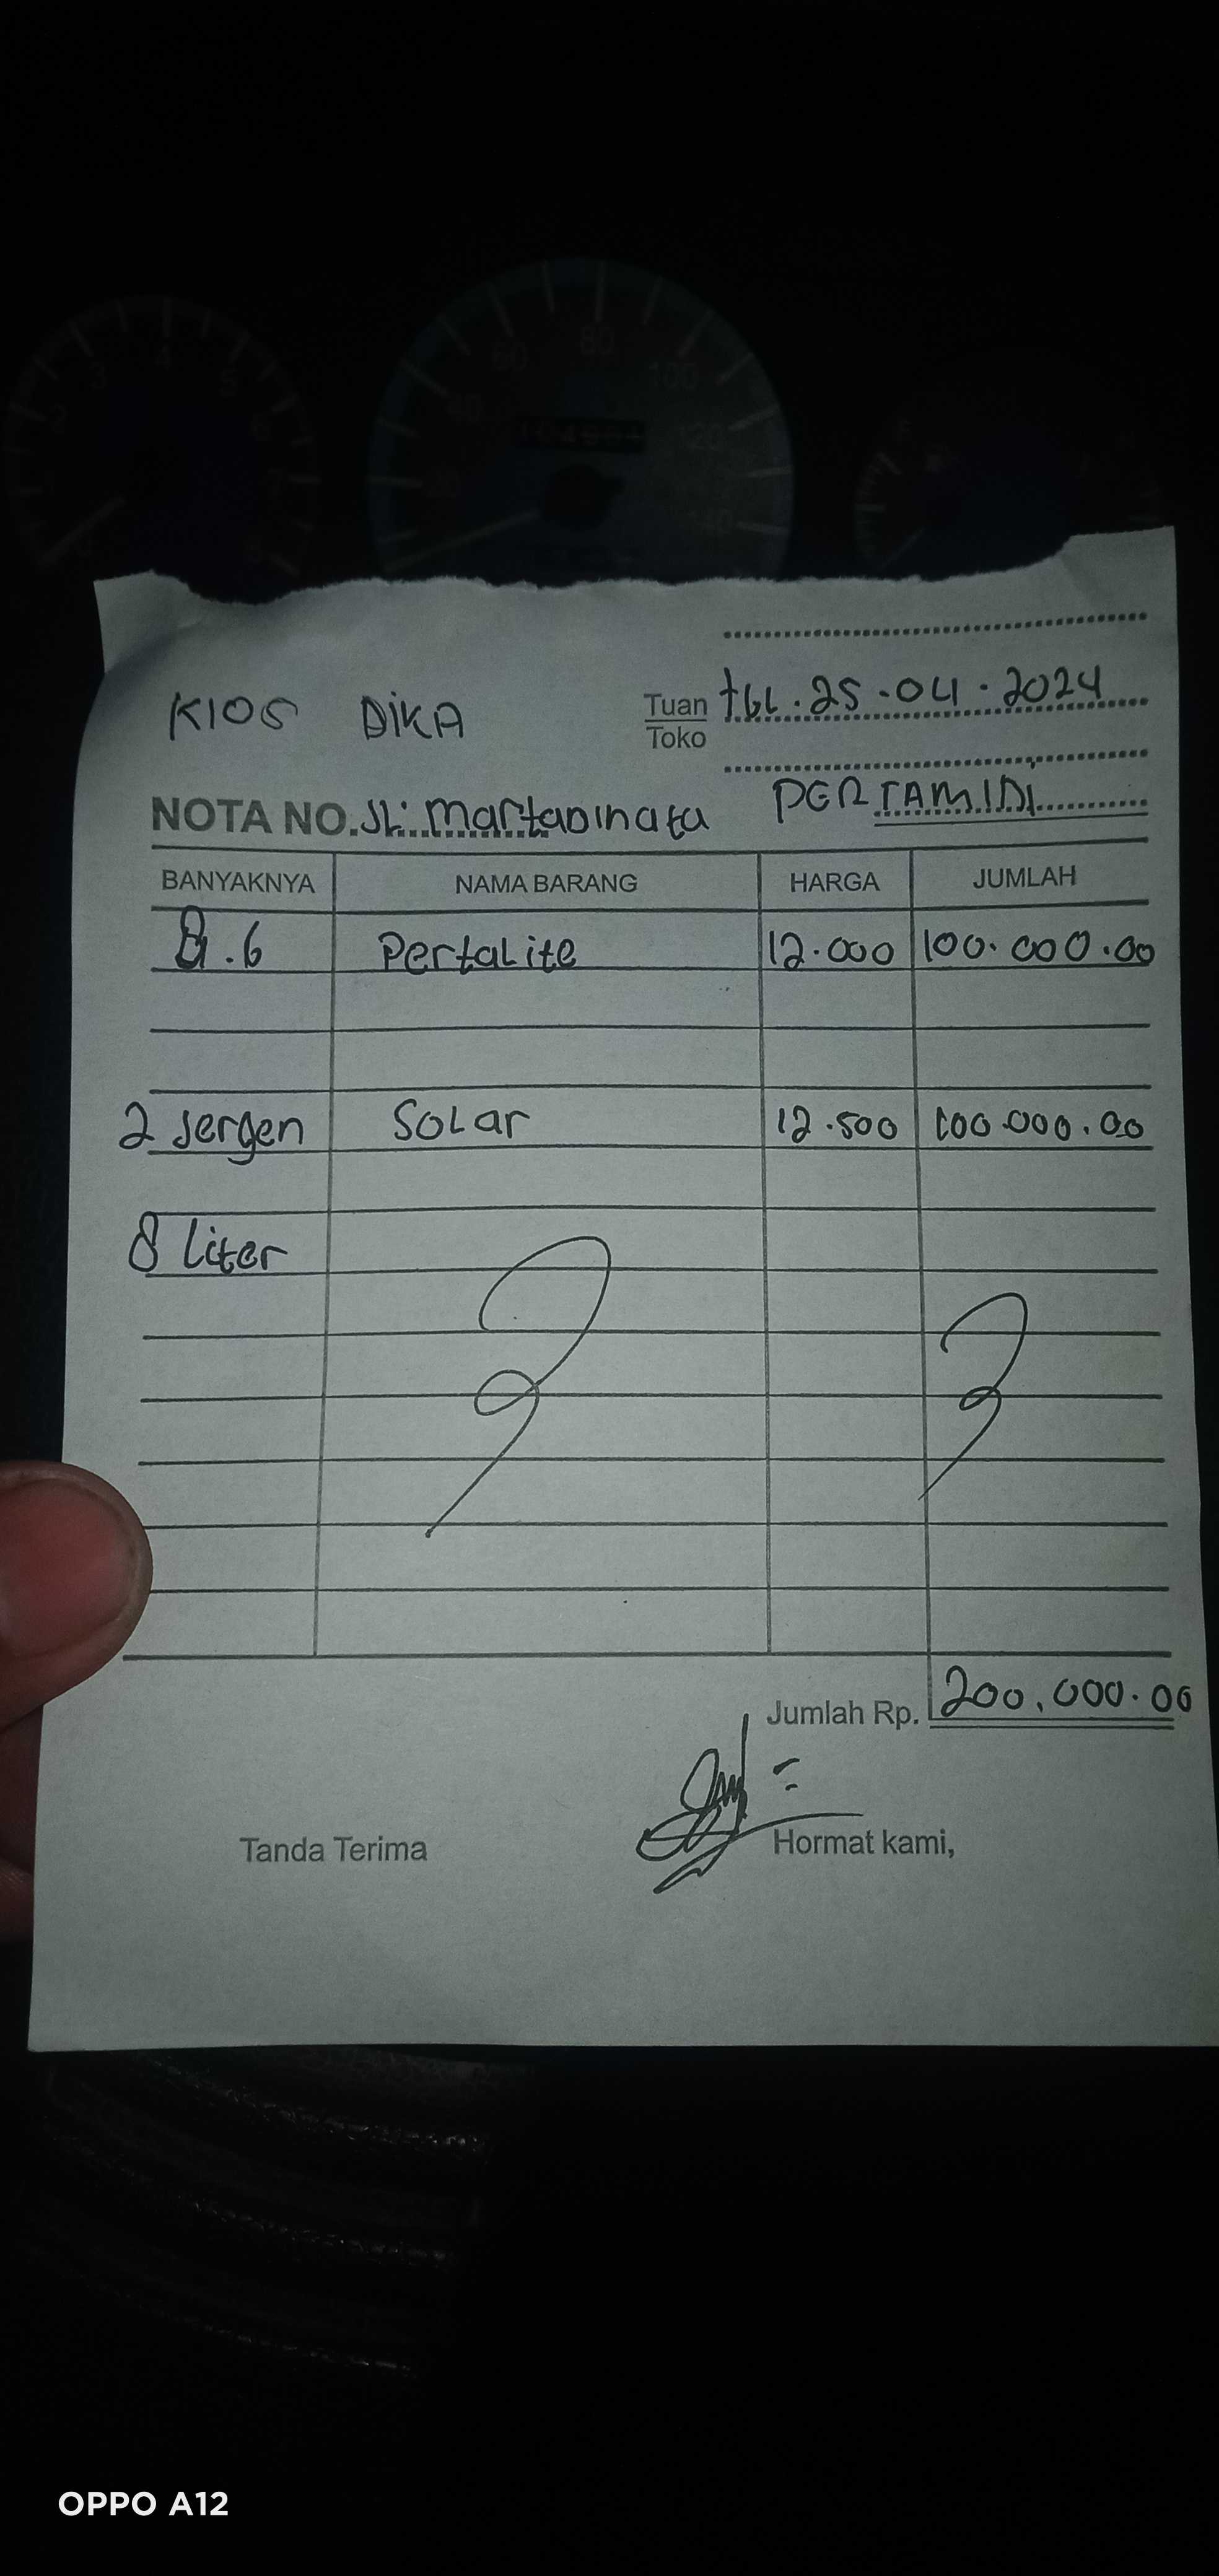 KIOS DIKA
Tuan
Toko
tGL.25-04-2024
NOTA NO. JL. Martadinata PERTAMIDI
BANYAKNYA NAMA BARANG HARGA JUMLAH
8.6 Pertalite 12.000 100.000.00
2 Jergen Solar 12.500 100.000.00
8 Liter
Jumlah Rp. 200.000.00
Tanda Terima Hormat kami,
OPPO A12